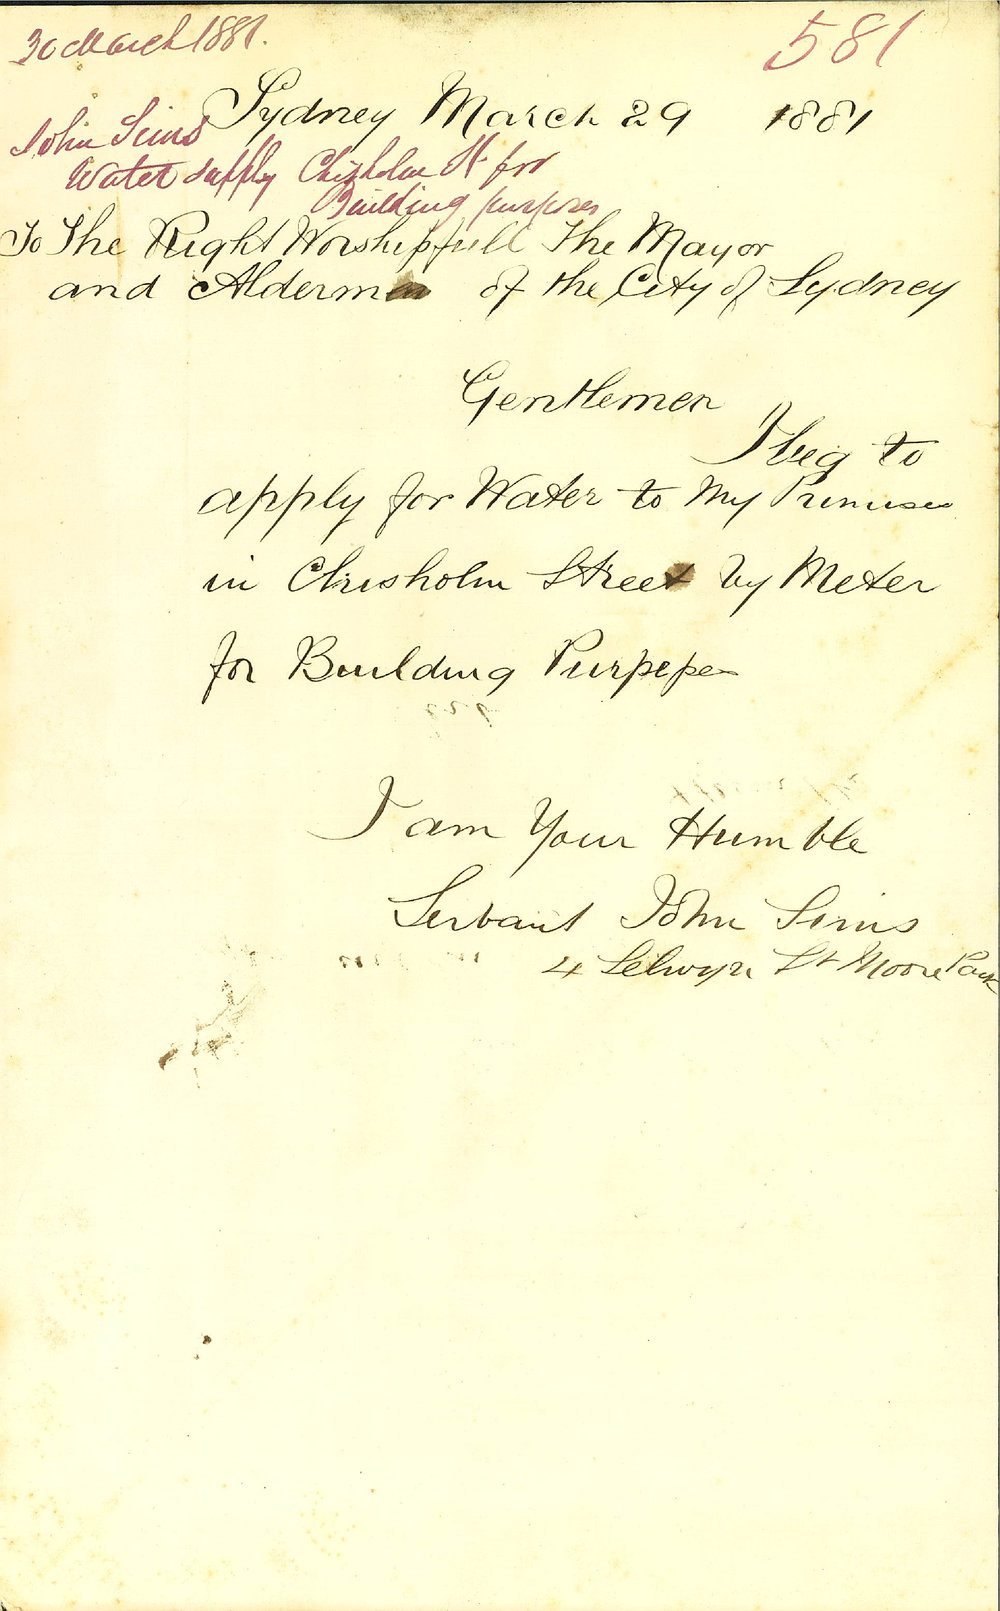 30 March 1881.
581
Sydney March 29 1881
John Sims
Water supply Chisholm St for
Building purposes
To The Right Worshipfull The Mayor
and Aldermen of the City of Sydney
Gentlemen
I beg to
apply for Water to My Primises
in Chisholm Street by Meter
for Building Purpepes
I am Your Humble
Servant John Sims
4 Selwyn St Moore Park